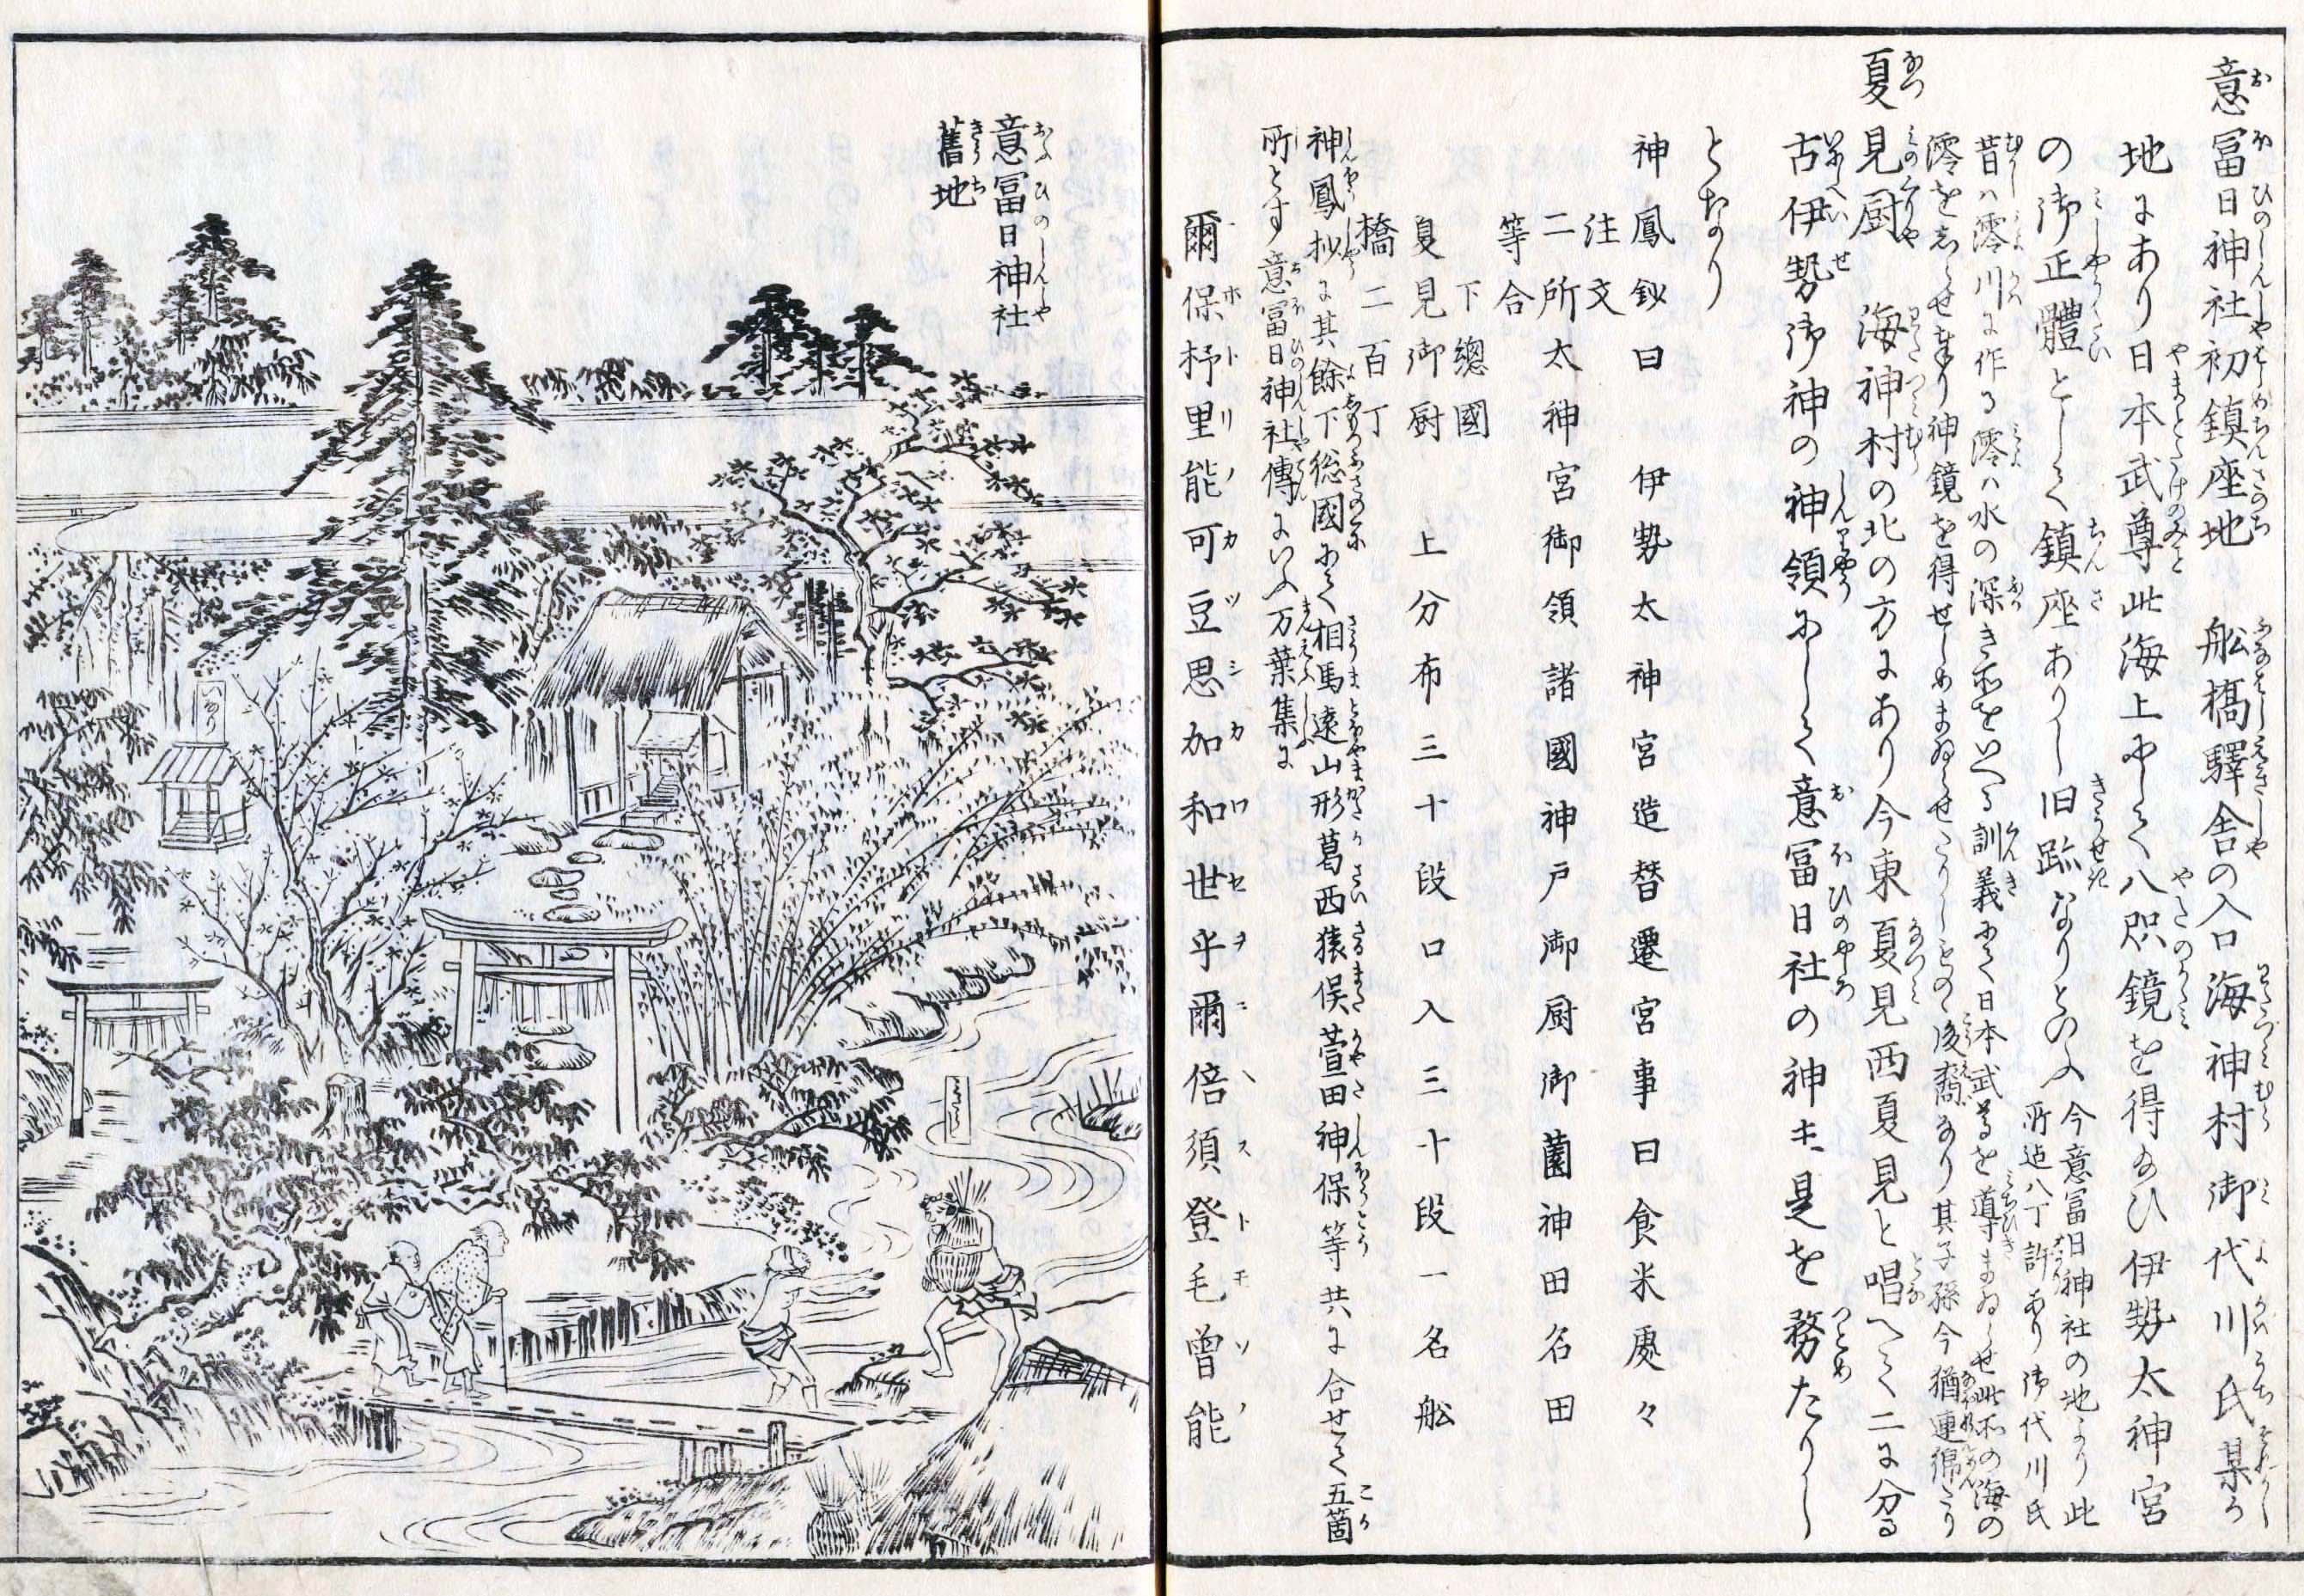 意冨日神社初鎮座地　舩橋驛舎の入口海神村御代川氏某か
地にあり日本武尊此海上にして八咫鏡を得給ひ伊勢太神宮
の御正體として鎮座ありし旧跡なりといふ
今意冨日神社の地より此
所迠八丁許あり御代川氏
昔ハ澪川に作る澪ハ水の深き所をいへる訓義にて日本武尊を導きまゐらせ此所の海の
澪をしらせ奉り神鏡を得せしめまゐらせたりしものゝ後裔なり其子孫今猶連綿たり
夏見厨　海神村の北の方にあり今東夏見西夏見と唱へて二に分る
古伊勢御神の神領にして意冨日社の神主是を務たりし
となり
神鳳鈔曰　伊勢太神宮造替遷宮事曰食米處々
注文
二所太神宮御領諸國神戸御厨御薗神田名田
等合
下總國
夏見御厨　上分布三十段口入三十段一名舩
橋二百丁
神鳳抄に其餘下総國にて相馬遠山形葛西猿俣萱田神保等共に合せて五箇
所とす意冨日神社傳にいふ万葉集に
爾保杼里能可豆思加和世乎爾倍須登毛曽能
意冨日神社
舊地
いなり